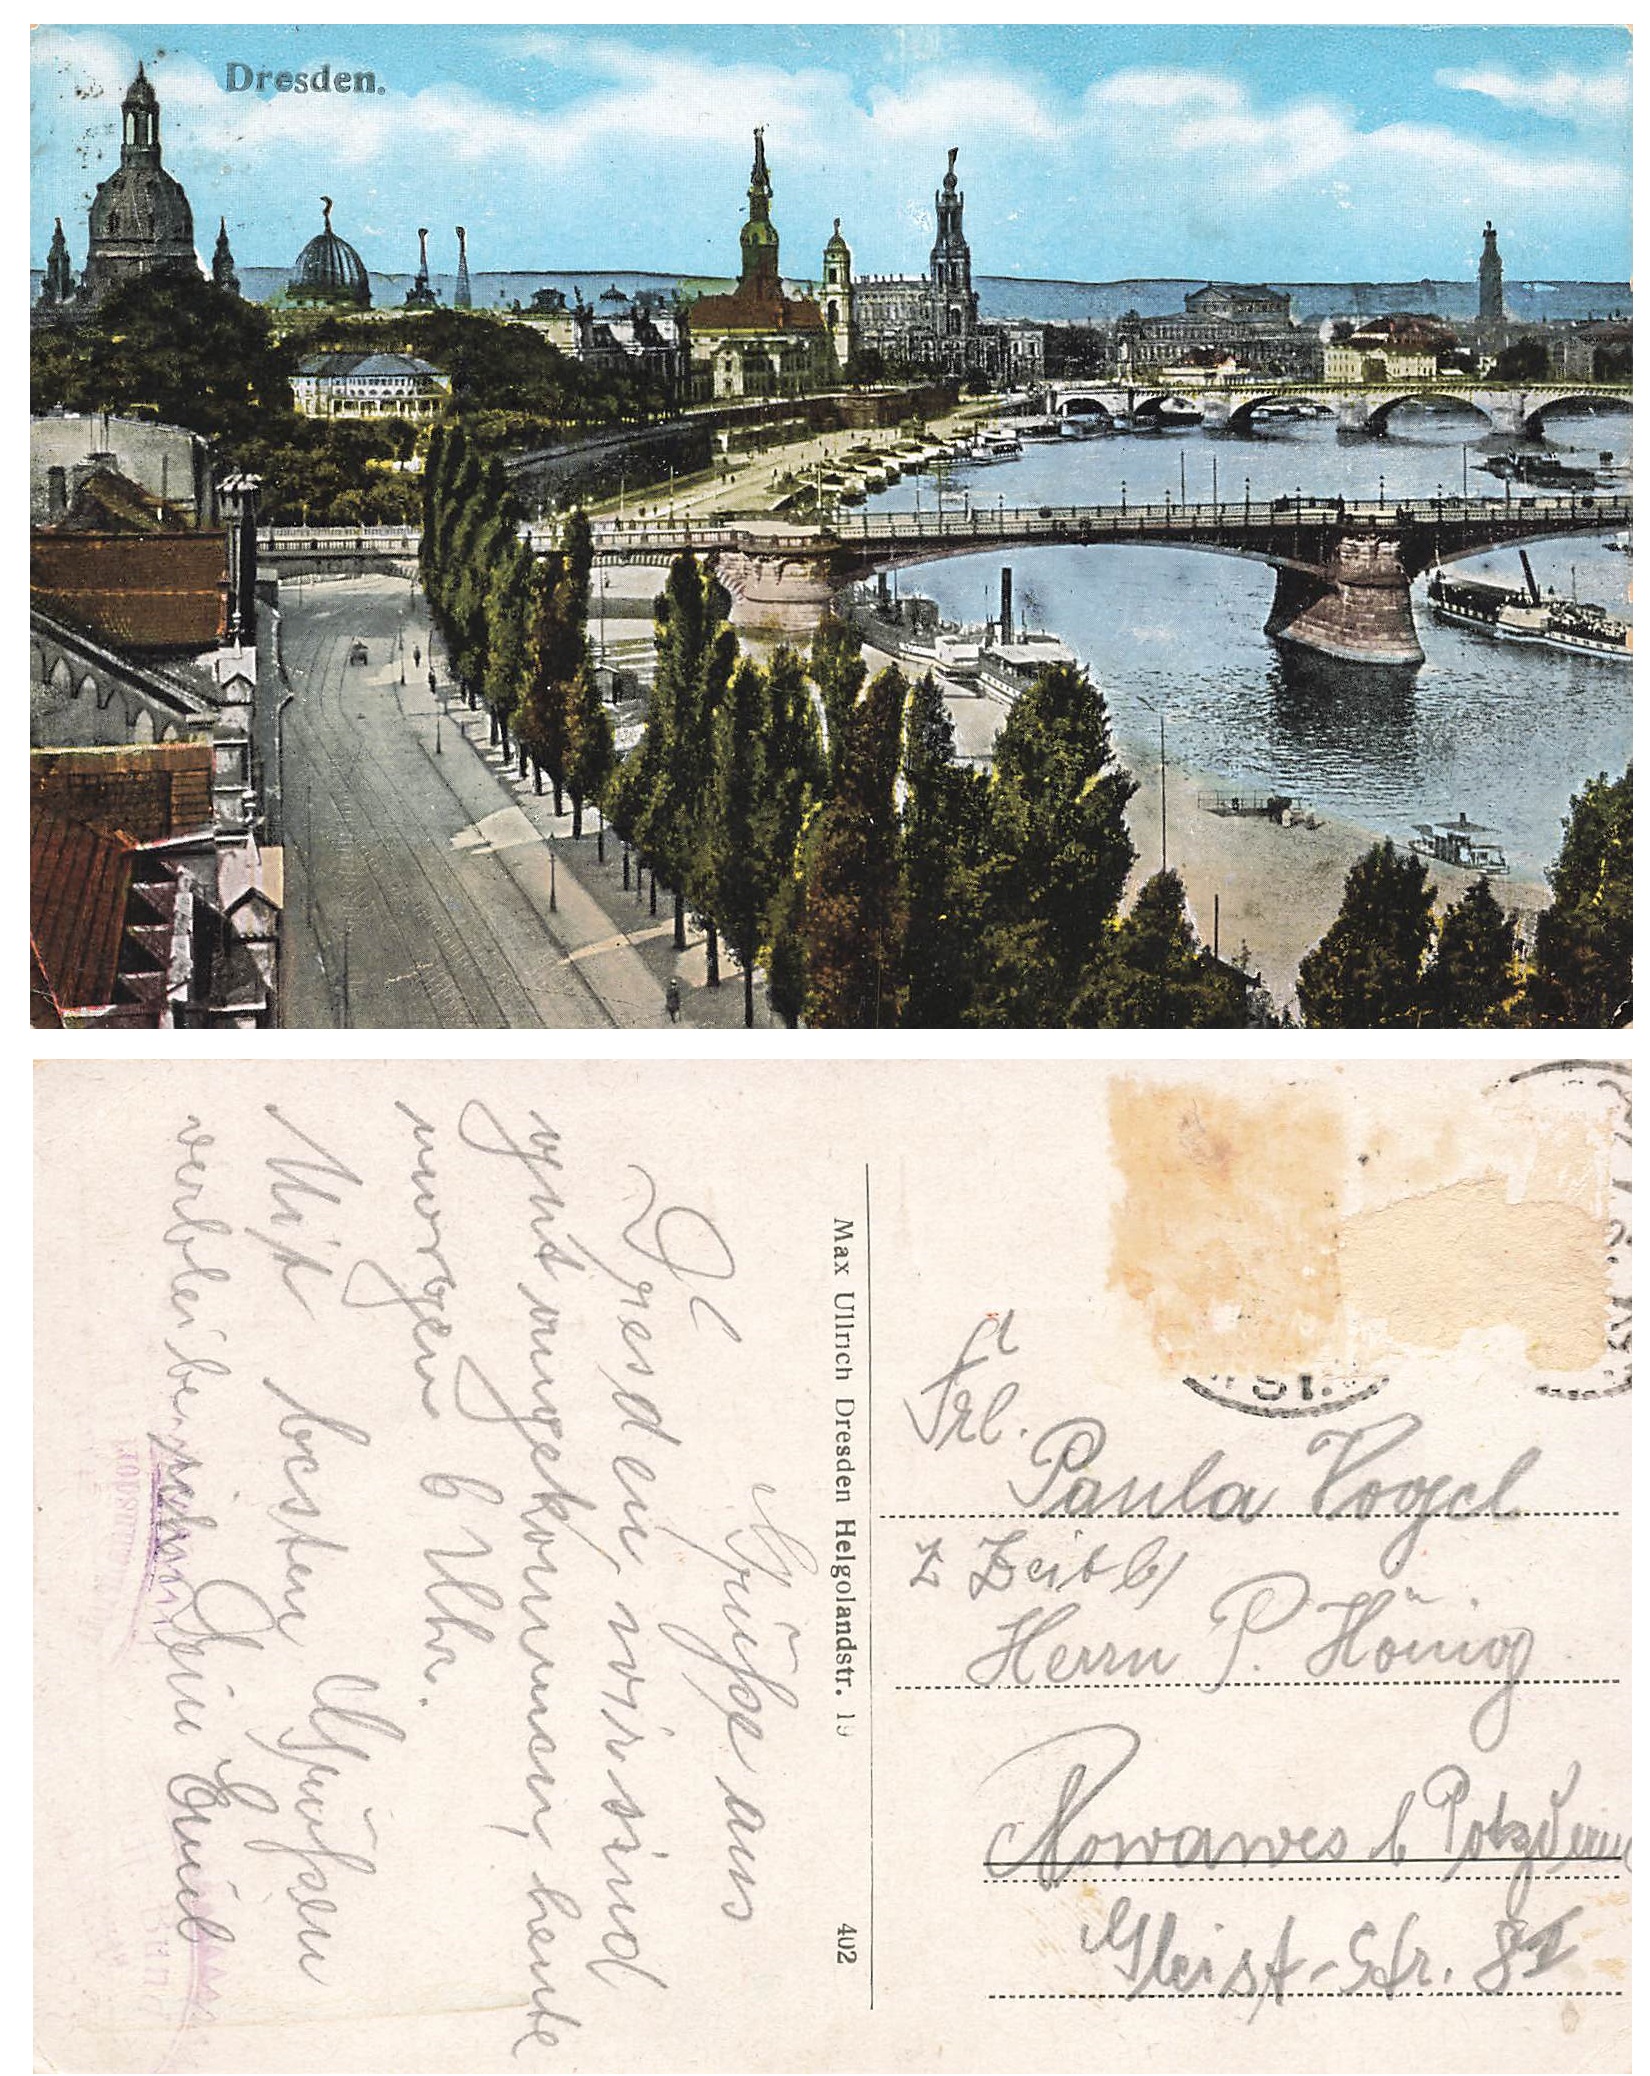 Dresden.
Max Ullrich Dresden Helgolandstr. 19
402
Frl.
Paula Vogel
z Zeit b/
Herrn P. Hönig
Nowawes b Potzdam
Str. 8I
Die Grüße aus
Dresden, wir sind
gut angekommen, heute
morgen 6 Uhr.
Mit besten Grüßen
verbleibe Dein Emil